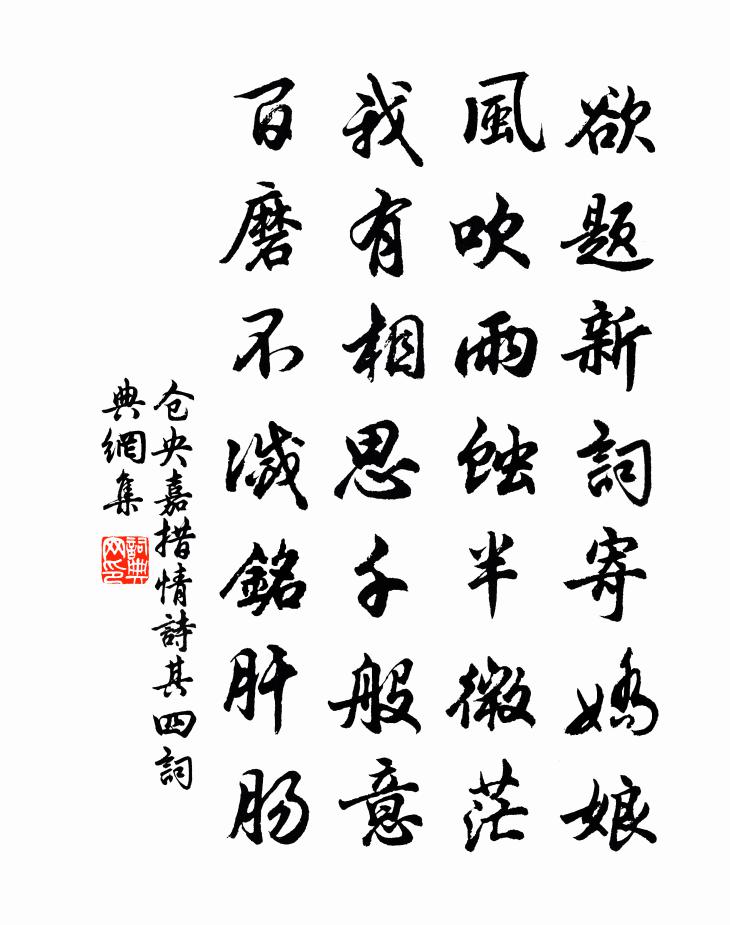 欲题新詞寄嬌娘
風吹雨蝕半微茫
我有相思千般意
百磨不滅銘肝肠
仓央嘉措情詩其四詞
典網集
詞典网印